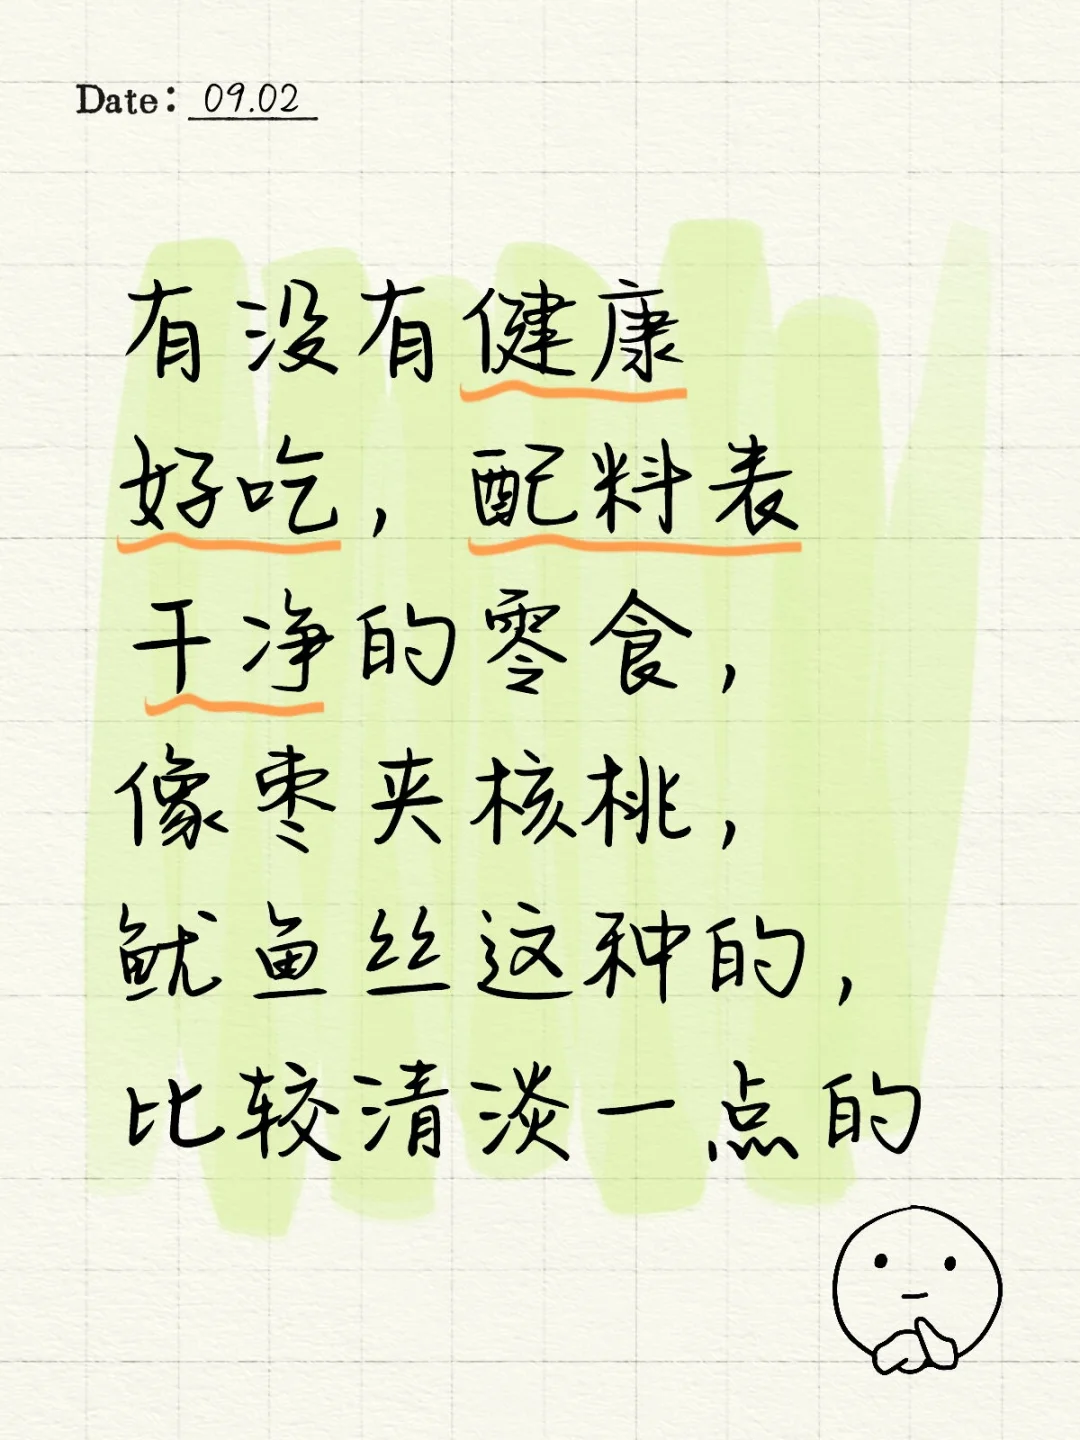 Date: 09.02
有没有健康
好吃，配料表
干净的零食，
像枣夹核桃，
鱿鱼丝这种的，
比较清淡一点的